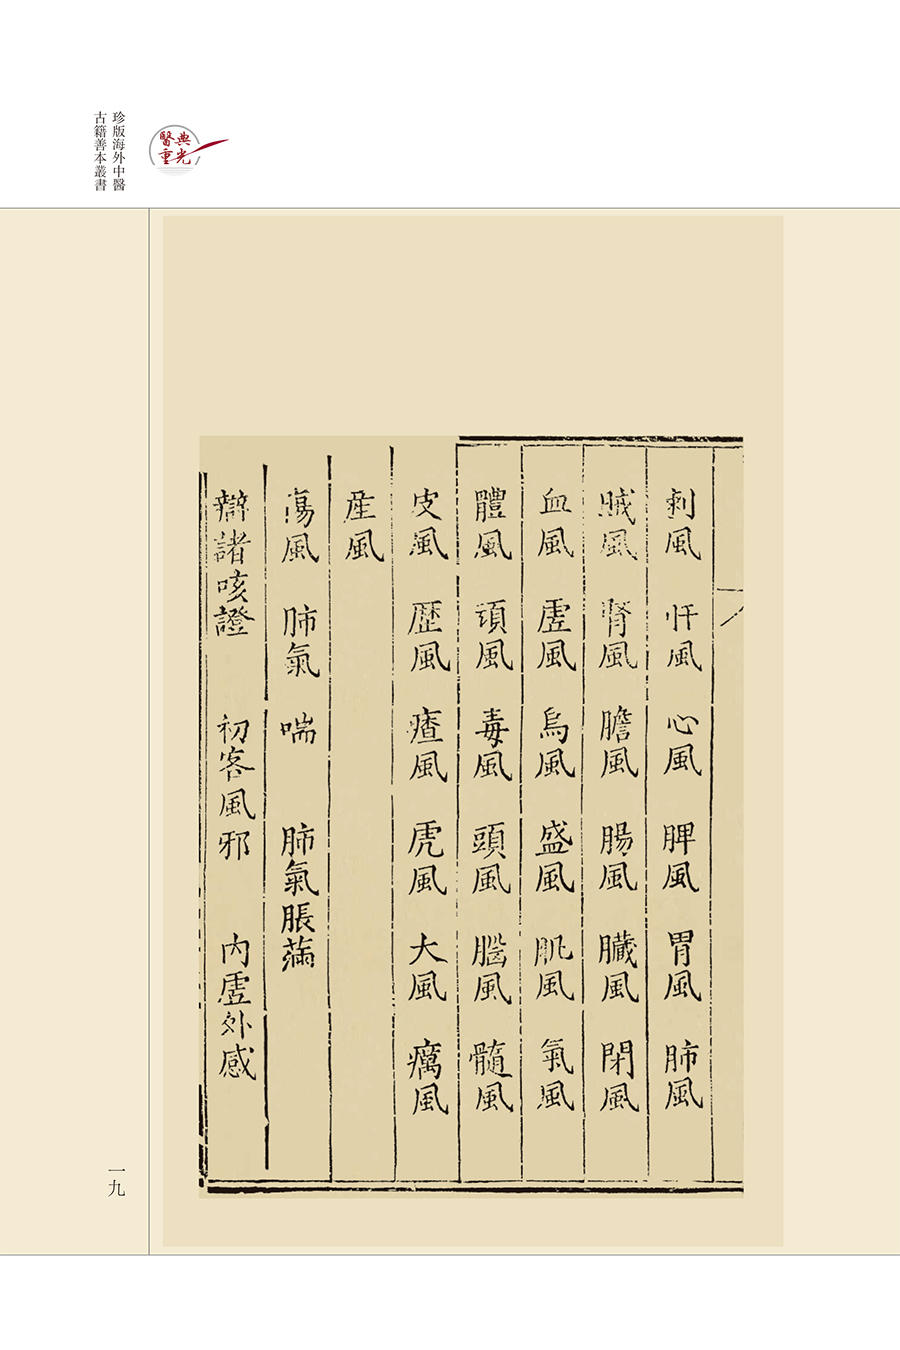 珍版海外中醫
古籍善本叢書
醫典
重光
刺風　忓風　心風　脾風　胃風　肺風
賊風　腎風　膽風　腸風　臟風　閉風
血風　虗風　烏風　盛風　肌風　氣風
體風　頊風　毒風　頭風　腦風　髓風
皮風　歷風　㾴風　虎風　大風　癘風
産風
傷風　肺氣　喘　肺氣脹滿
辯諸咳證　初客風邪　內虗外感
一九